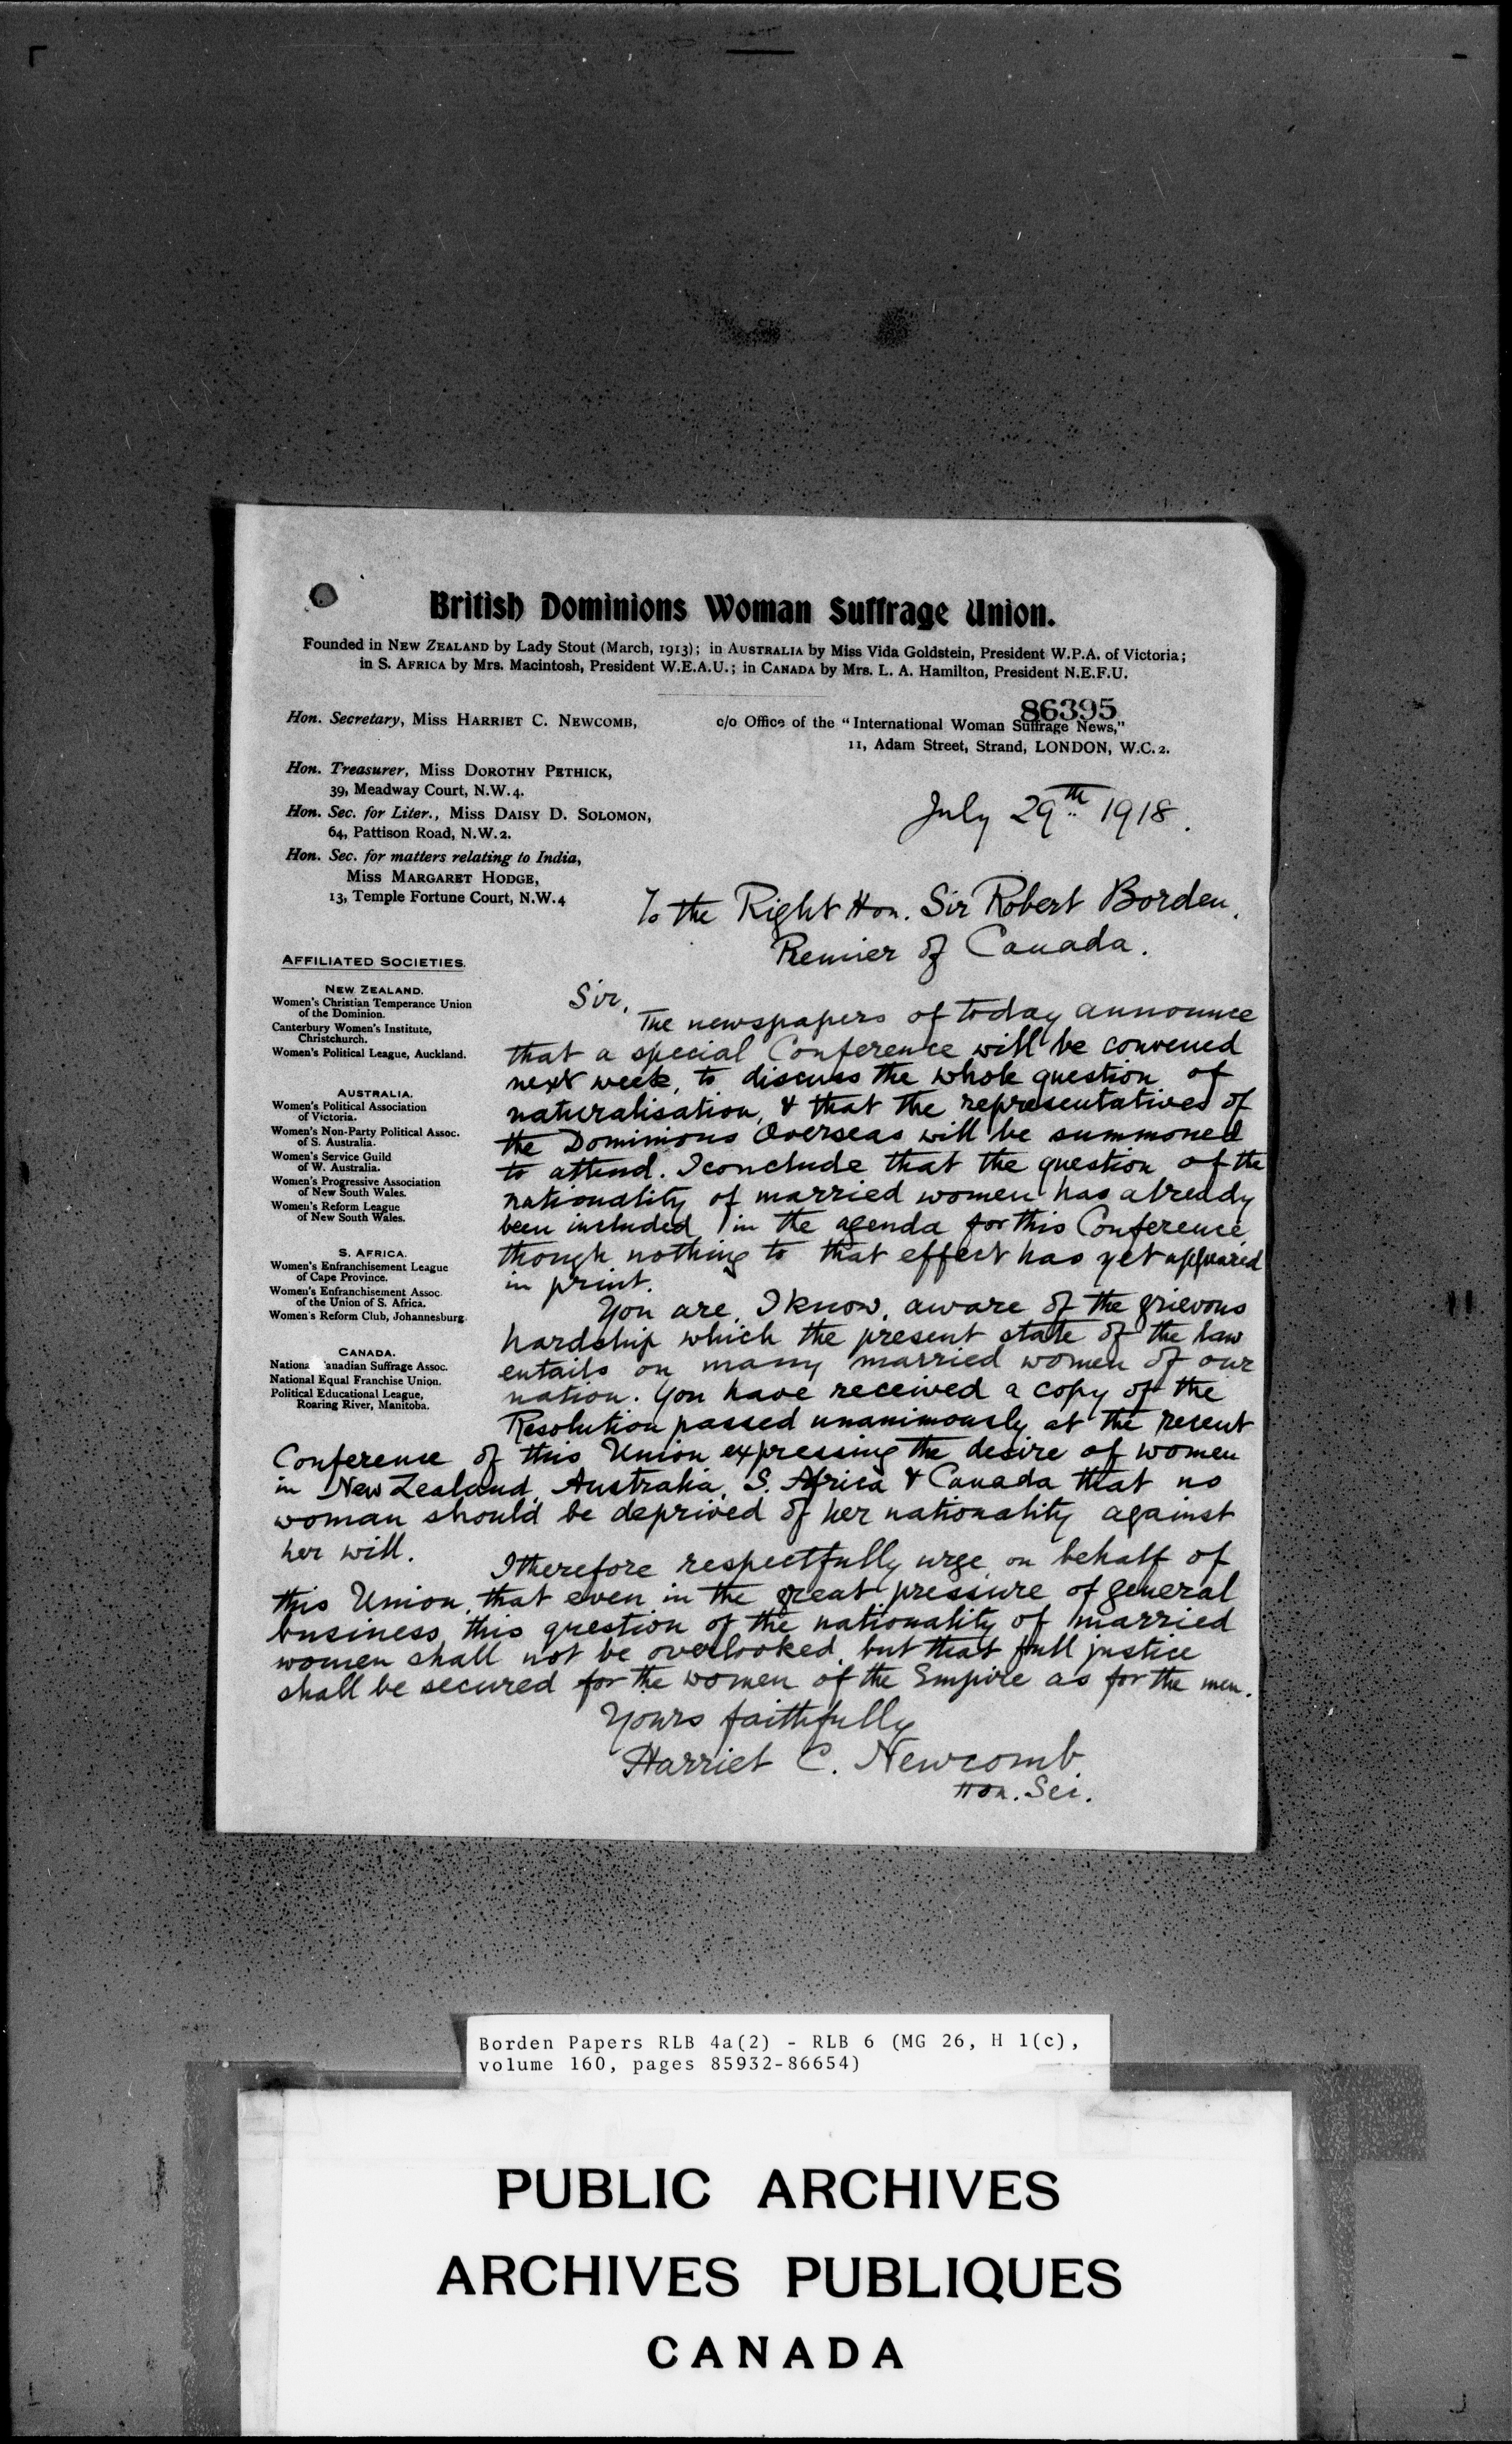 British Dominions Woman Suffrage Union.
Founded in NEW ZEALAND by Lady Stout (March, 1913); in AUSTRALIA by Miss Vida Goldstein, President W.P.A. of Victoria;
in S. AFRICA by Mrs. Macintosh, President W.E.A.U.; in CANADA by Mrs. L. A. Hamilton, President N.E.F.U.
86395
Hon. Secretary, Miss HARRIET C. NEWCOMB,
c/o Office of the "International Woman Suffrage News,"
11, Adam Street, Strand, LONDON, W.C.2.
Hon. Treasurer, Miss DOROTHY PETHICK,
39, Meadway Court, N.W.4.
Hon. Sec. for Liter., Miss DAISY D. SOLOMON,
64, Pattison Road, N.W.2.
Hon. Sec. for matters relating to India,
Miss MARGARET HODGE,
13, Temple Fortune Court, N.W.4
July 29th 1918.
To the Right Hon. Sir Robert Borden,
Premier of Canada.
AFFILIATED SOCIETIES.
NEW ZEALAND.
Women's Christian Temperance Union
of the Dominion.
Canterbury Women's Institute,
Christchurch.
Women's Political League, Auckland.
AUSTRALIA.
Women's Political Association
of Victoria.
Women's Non-Party Political Assoc.
of S. Australia.
Women's Service Guild
of W. Australia.
Women's Progressive Association
of New South Wales.
Women's Reform League
of New South Wales.
S. AFRICA.
Women's Enfranchisement League
of Cape Province.
Women's Enfranchisement Assoc.
of the Union of S. Africa.
Women's Reform Club, Johannesburg.
CANADA.
Nationa anadian Suffrage Assoc.
National Equal Franchise Union.
Political Educational League,
Roaring River, Manitoba.
Sir,
The newspapers of today announce
that a special Conference will be convened
next week, to discuss the whole question of
naturalisation, & that the representatives of
the Dominions Overseas will be summoned
to attend. I conclude that the question of the
nationality of married women has already
been included in the agenda for this Conference,
though nothing to that effect has yet appeared
in print.
You are, I know, aware of the grievous
hardship which the present state of the law
entails on many married women of our
nation. You have received a copy of the
Resolution passed unanimously at the recent
Conference of this Union expressing the desire of women
in New Zealand, Australia, S. Africa & Canada that no
woman should be deprived of her nationality against
her will.
I therefore respectfully urge, on behalf of
this Union, that even in the great pressure of general
business, this question of the nationality of married
women shall not be overlooked, but that full justice
shall be secured for the women of the Empire as for the men.
Yours faithfully
Harriet C. Newcomb
Hon. Sec.
Borden Papers RLB 4a(2) - RLB 6 (MG 26, H 1(c),
volume 160, pages 85932-86654)
PUBLIC ARCHIVES
ARCHIVES PUBLIQUES
CANADA